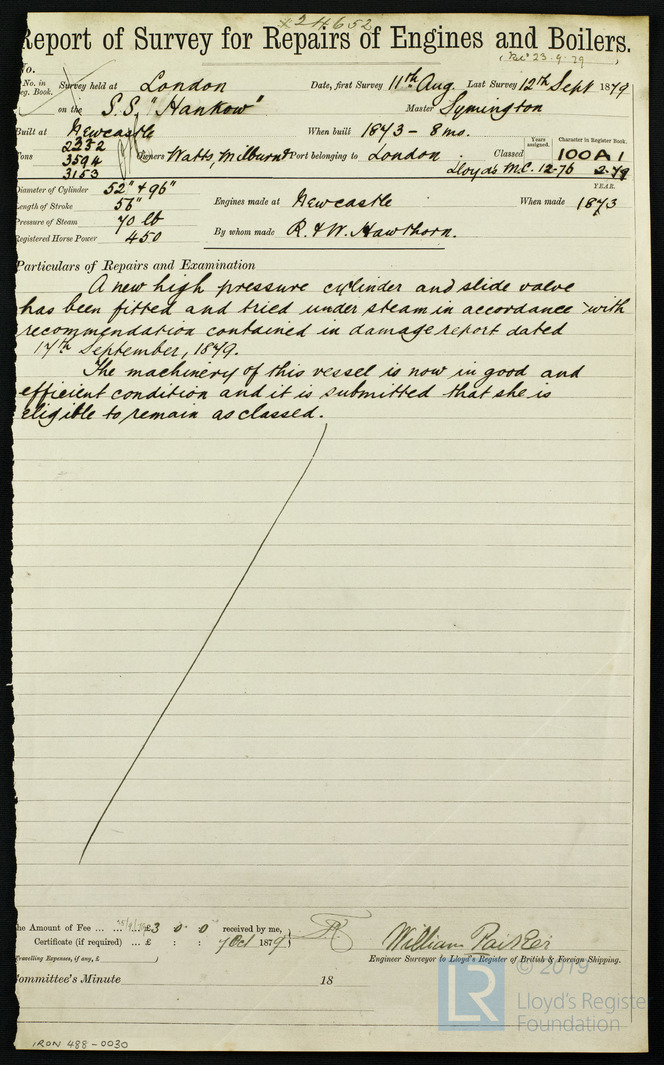 × 24652
Report of Survey for Repairs of Engines and Boilers.
Recd 23.9.79
No.
No. in Reg. Book. Survey held at London Date, first Survey 11th Aug. Last Survey 12th Sept 1879
on the S.S. "Hankow" Master Symington
Built at Newcastle When built 1873 - 8 mo. Years assigned. Character in Register Book.
Tons 2332 3594 3153 Owners Watts, Milburn & Port belonging to London Classed 100 A 1
Lloyds M.C. 12-76 2-79
YEAR.
Diameter of Cylinder 52" & 96"
Length of Stroke 57" Engines made at Newcastle When made 1873
Pressure of Steam 70 lb
Registered Horse Power 450 By whom made R. & W. Hawthorn.
Particulars of Repairs and Examination
A new high pressure cylinder and slide valve
has been fitted and tried under steam in accordance with
recommendation contained in damage report dated
17th September, 1879.
The machinery of this vessel is now in good and
efficient condition and it is submitted that she is
eligible to remain as classed.
The Amount of Fee ... ... ... £3 : 0 : 0 received by me,
Certificate (if required) ... £ : : 7 Oct 1879
(Travelling Expenses, if any, £ )
William Parker
Engineer Surveyor to Lloyd's Register of British & Foreign Shipping.
Committee's Minute 18
© 2019
LR Lloyd's Register
Foundation
IRON 488-0030